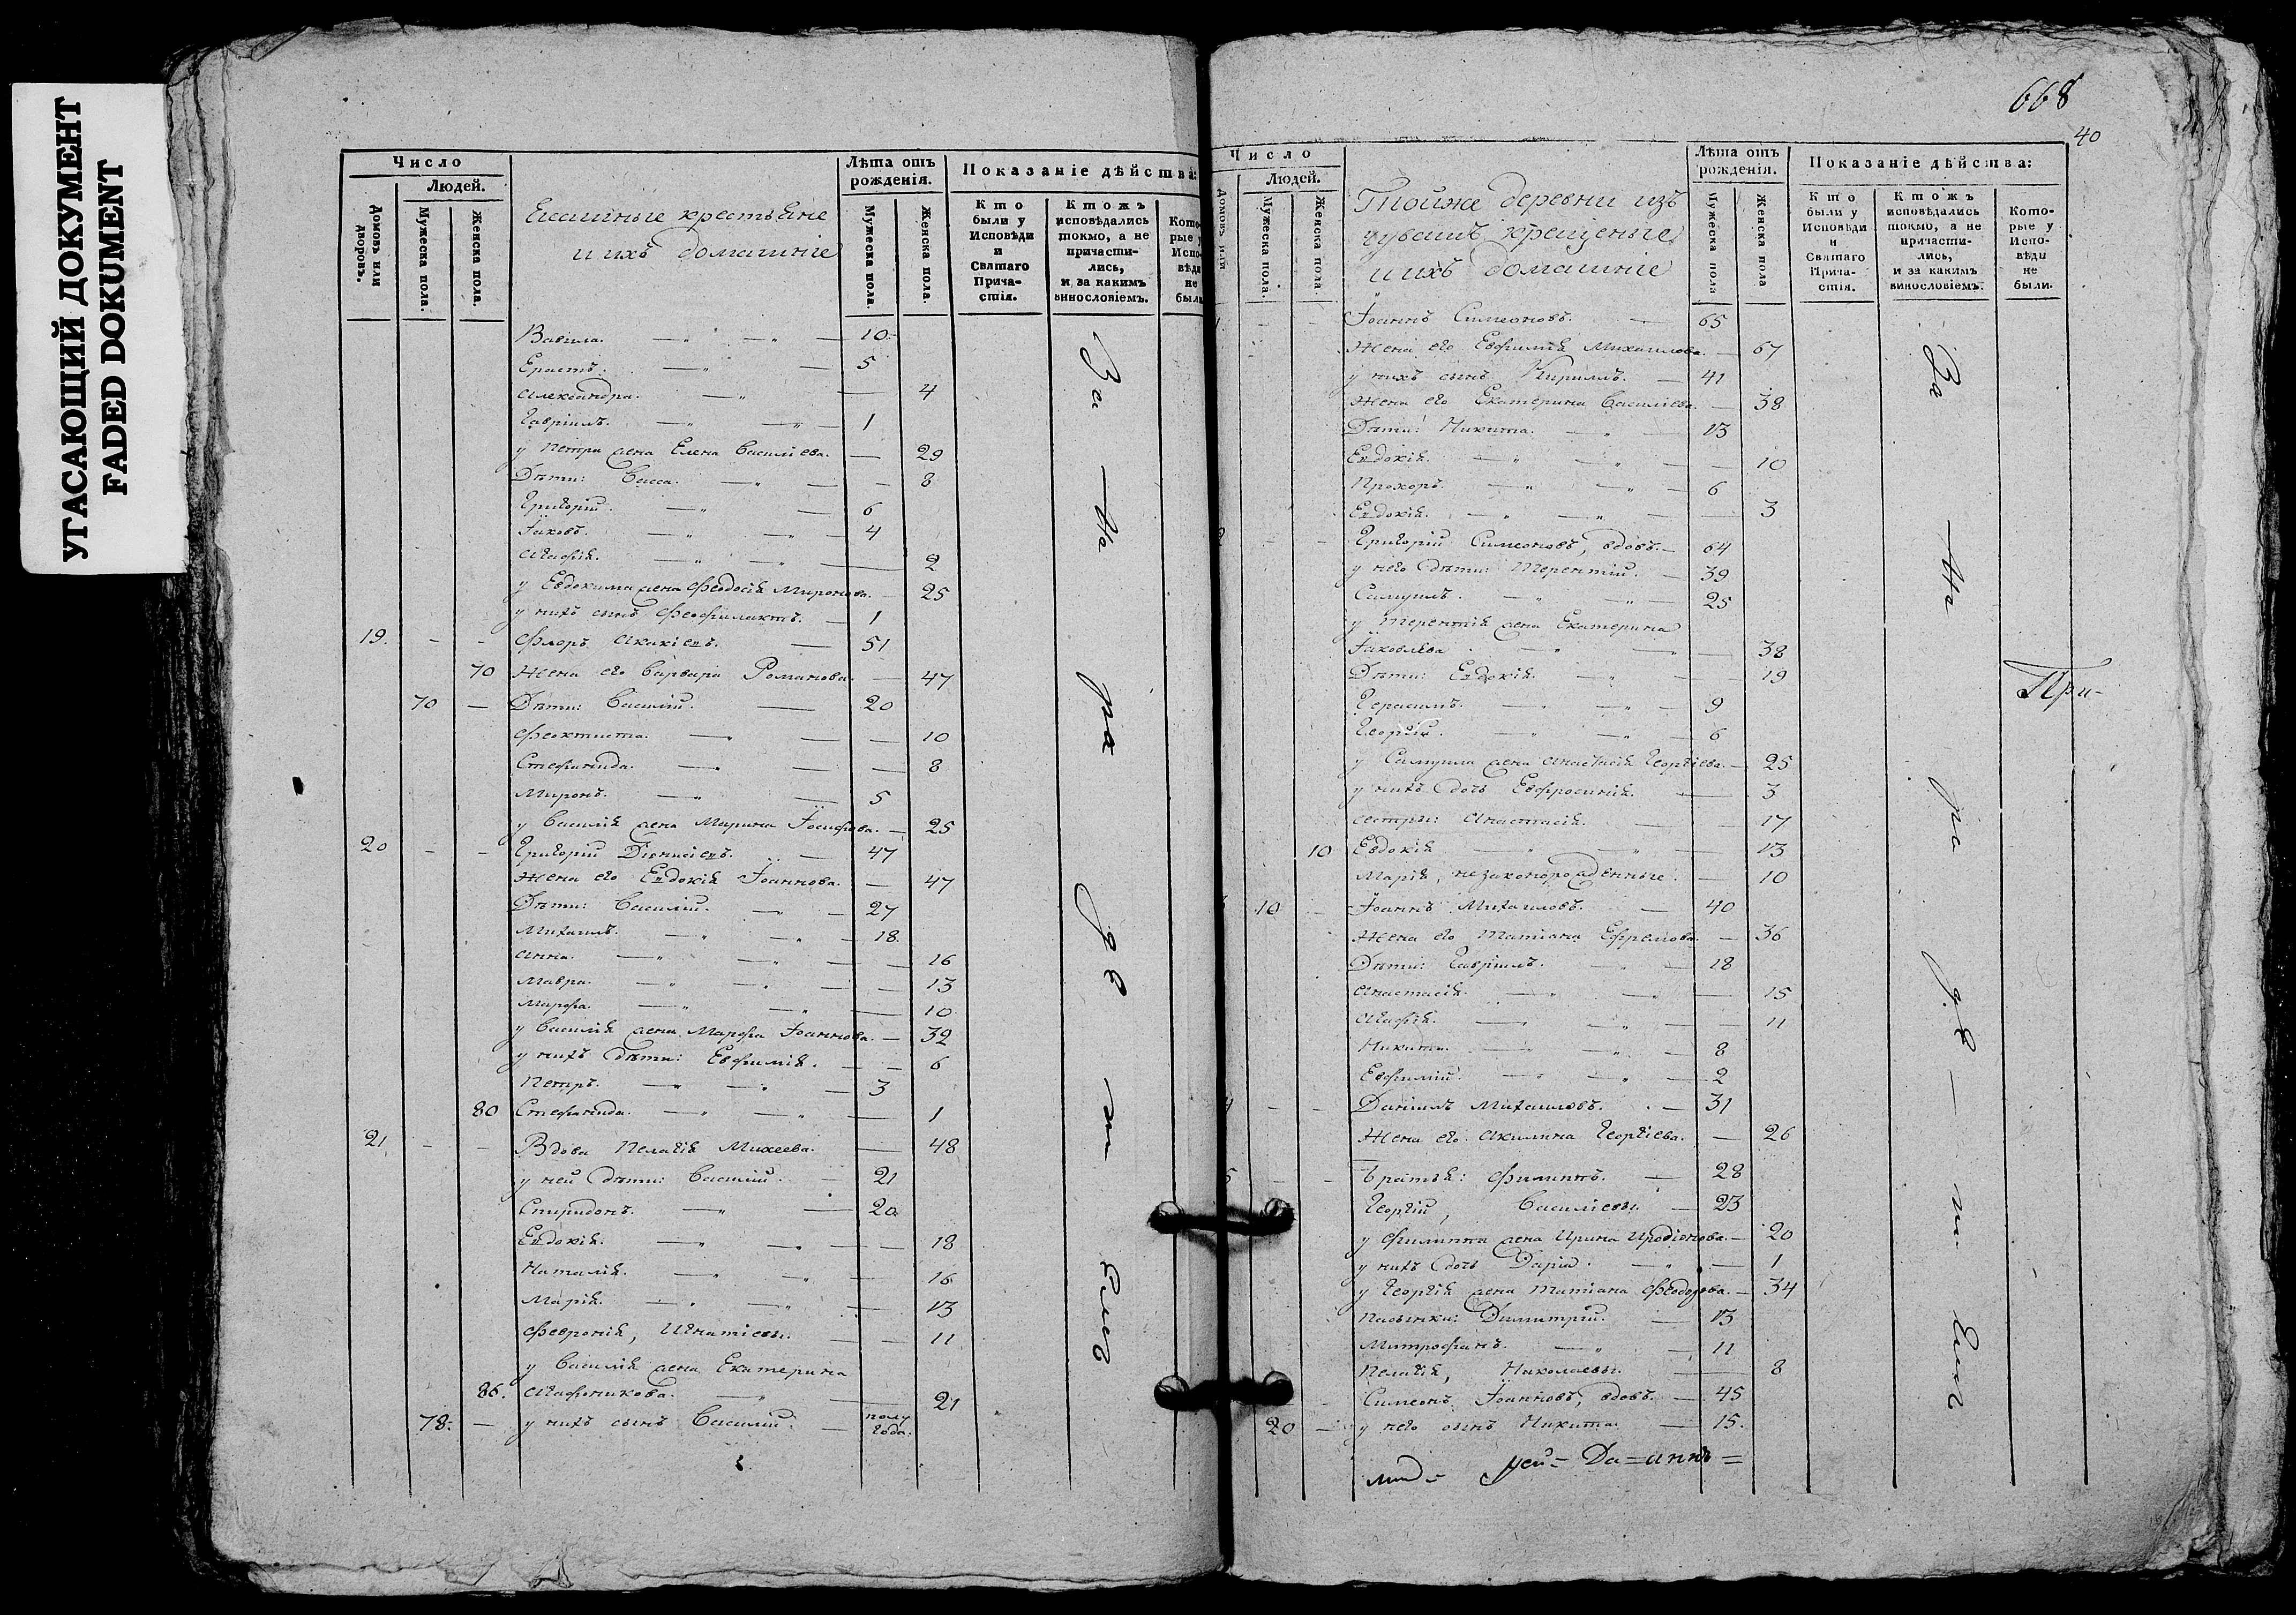 УГАСАЮЩИЙ ДОКУМЕНТ
FADED DOKUMENT
Число
Людей.
Домовъ или дворовъ.
Мужеска пола.
Женска пола.
крестьяне
и ихъ домашніе
Лѣта отъ рожденія.
Мужеска пола.
Женска пола.
Показаніе дѣйства:
Кто были у Исповѣди и Святаго Причастія.
Ктожъ исповѣдались токмо, а не причастились, и за какимъ винословіемъ.
Которые у Исповѣди не были
Вавила. 10
Ерастъ. 5
Александра. 4
Гавріилъ. 1
у Петра жена Елена Василіева. 29
Дѣти: Васса. 8
Григорій. 6
Іаковъ. 4
Агафія. 2
у Евдокима жена Феодосія Миронова. 25
у нихъ сынъ Феофилактъ. 1
19. Флоръ Акакіевъ. 51
70 Жена его Варвара Романова. 47
70 Дѣти: Василій. 20
Феоктиста. 10
Стефанида. 8
Миронъ. 5
у Василія жена Марина Іосифова. 25
20 Григорій Діонисіевъ. 47
Жена его Евдокія Іоаннова. 47
Дѣти: Василій. 27
Михаилъ. 18.
Анна. 16
Мавра. 13
Марфа. 10
у Василія жена Марфа Іоаннова. 32
у нихъ дѣти: Евфимія. 6
Петръ. 3
80 Стефанида. 1
21. Вдова Пелагія Михеева. 48
у ней дѣти: Василій. 21
Спиридонъ. 20
Евдокія. 18
Наталія. 16
Марія. 13
Февронія, Игнатіевы. 11
у Василія жена Екатерина
86. Агафоникова. 21
78. у нихъ сынъ Василій. полу года.
За
на
ра
де
т
668
40
Число
Людей.
Домовъ или
Мужеска пола.
Женска пола.
Тойже деревни изъ
чувашъ крещеные
и ихъ домашніе
Лѣта отъ рожденія.
Мужеска пола
Женска пола
Показаніе дѣйства:
Кто были у Исповѣди и Святаго Причастія.
Ктожъ исповѣдались токмо, а не причастились, и за какимъ винословіемъ.
Которые у Исповѣди не были.
Іоаннъ Симеоновъ. 65
Жена его Евфимія Михаилова. 67
у нихъ сынъ Кириллъ. 41
Жена его Екатерина Василіева. 38
Дѣти: Никита. 13
Евдокія. 10
Прохоръ. 6
Евдокія. 3
Григорій Симеоновъ, вдовъ. 64
у него дѣти: Терентій. 39
Самуилъ. 25
у Терентія жена Екатерина
Іаковлева. 38
Дѣти: Евдокія. 19
Герасимъ. 9
Георгій. 6
у Самуила жена Анастасія Георгіева. 25
у нихъ дочь Евфросинія. 3
сестры: Анастасія. 17
10 Евдокія 13
Марія, незаконорожденные. 10
10 Іоаннъ Михаиловъ. 40
Жена его Татіана Ефремова. 36
Дѣти: Гавріилъ. 18
Анастасія. 15
Агафія. 11
Никита. 8
Евфимій. 2
4 Даніилъ Михаиловъ. 31
Жена его Акилина Георгіева. 26
5 Братья: Филиппъ. 28
Георгій, Василіевы. 23
у Филиппа жена Ирина Иродіонова. 20
у нихъ дочь Дарія. 1
у Георгія жена Татіана Феодорова. 34
Пасынки: Димитрій. 13
Митрофанъ. 11
Пелагія, Николаевы. 8
Симеонъ Іоанновъ, вдовъ. 45
20 у него сынъ Никита. 15.
За
на
ра
де
т
При-